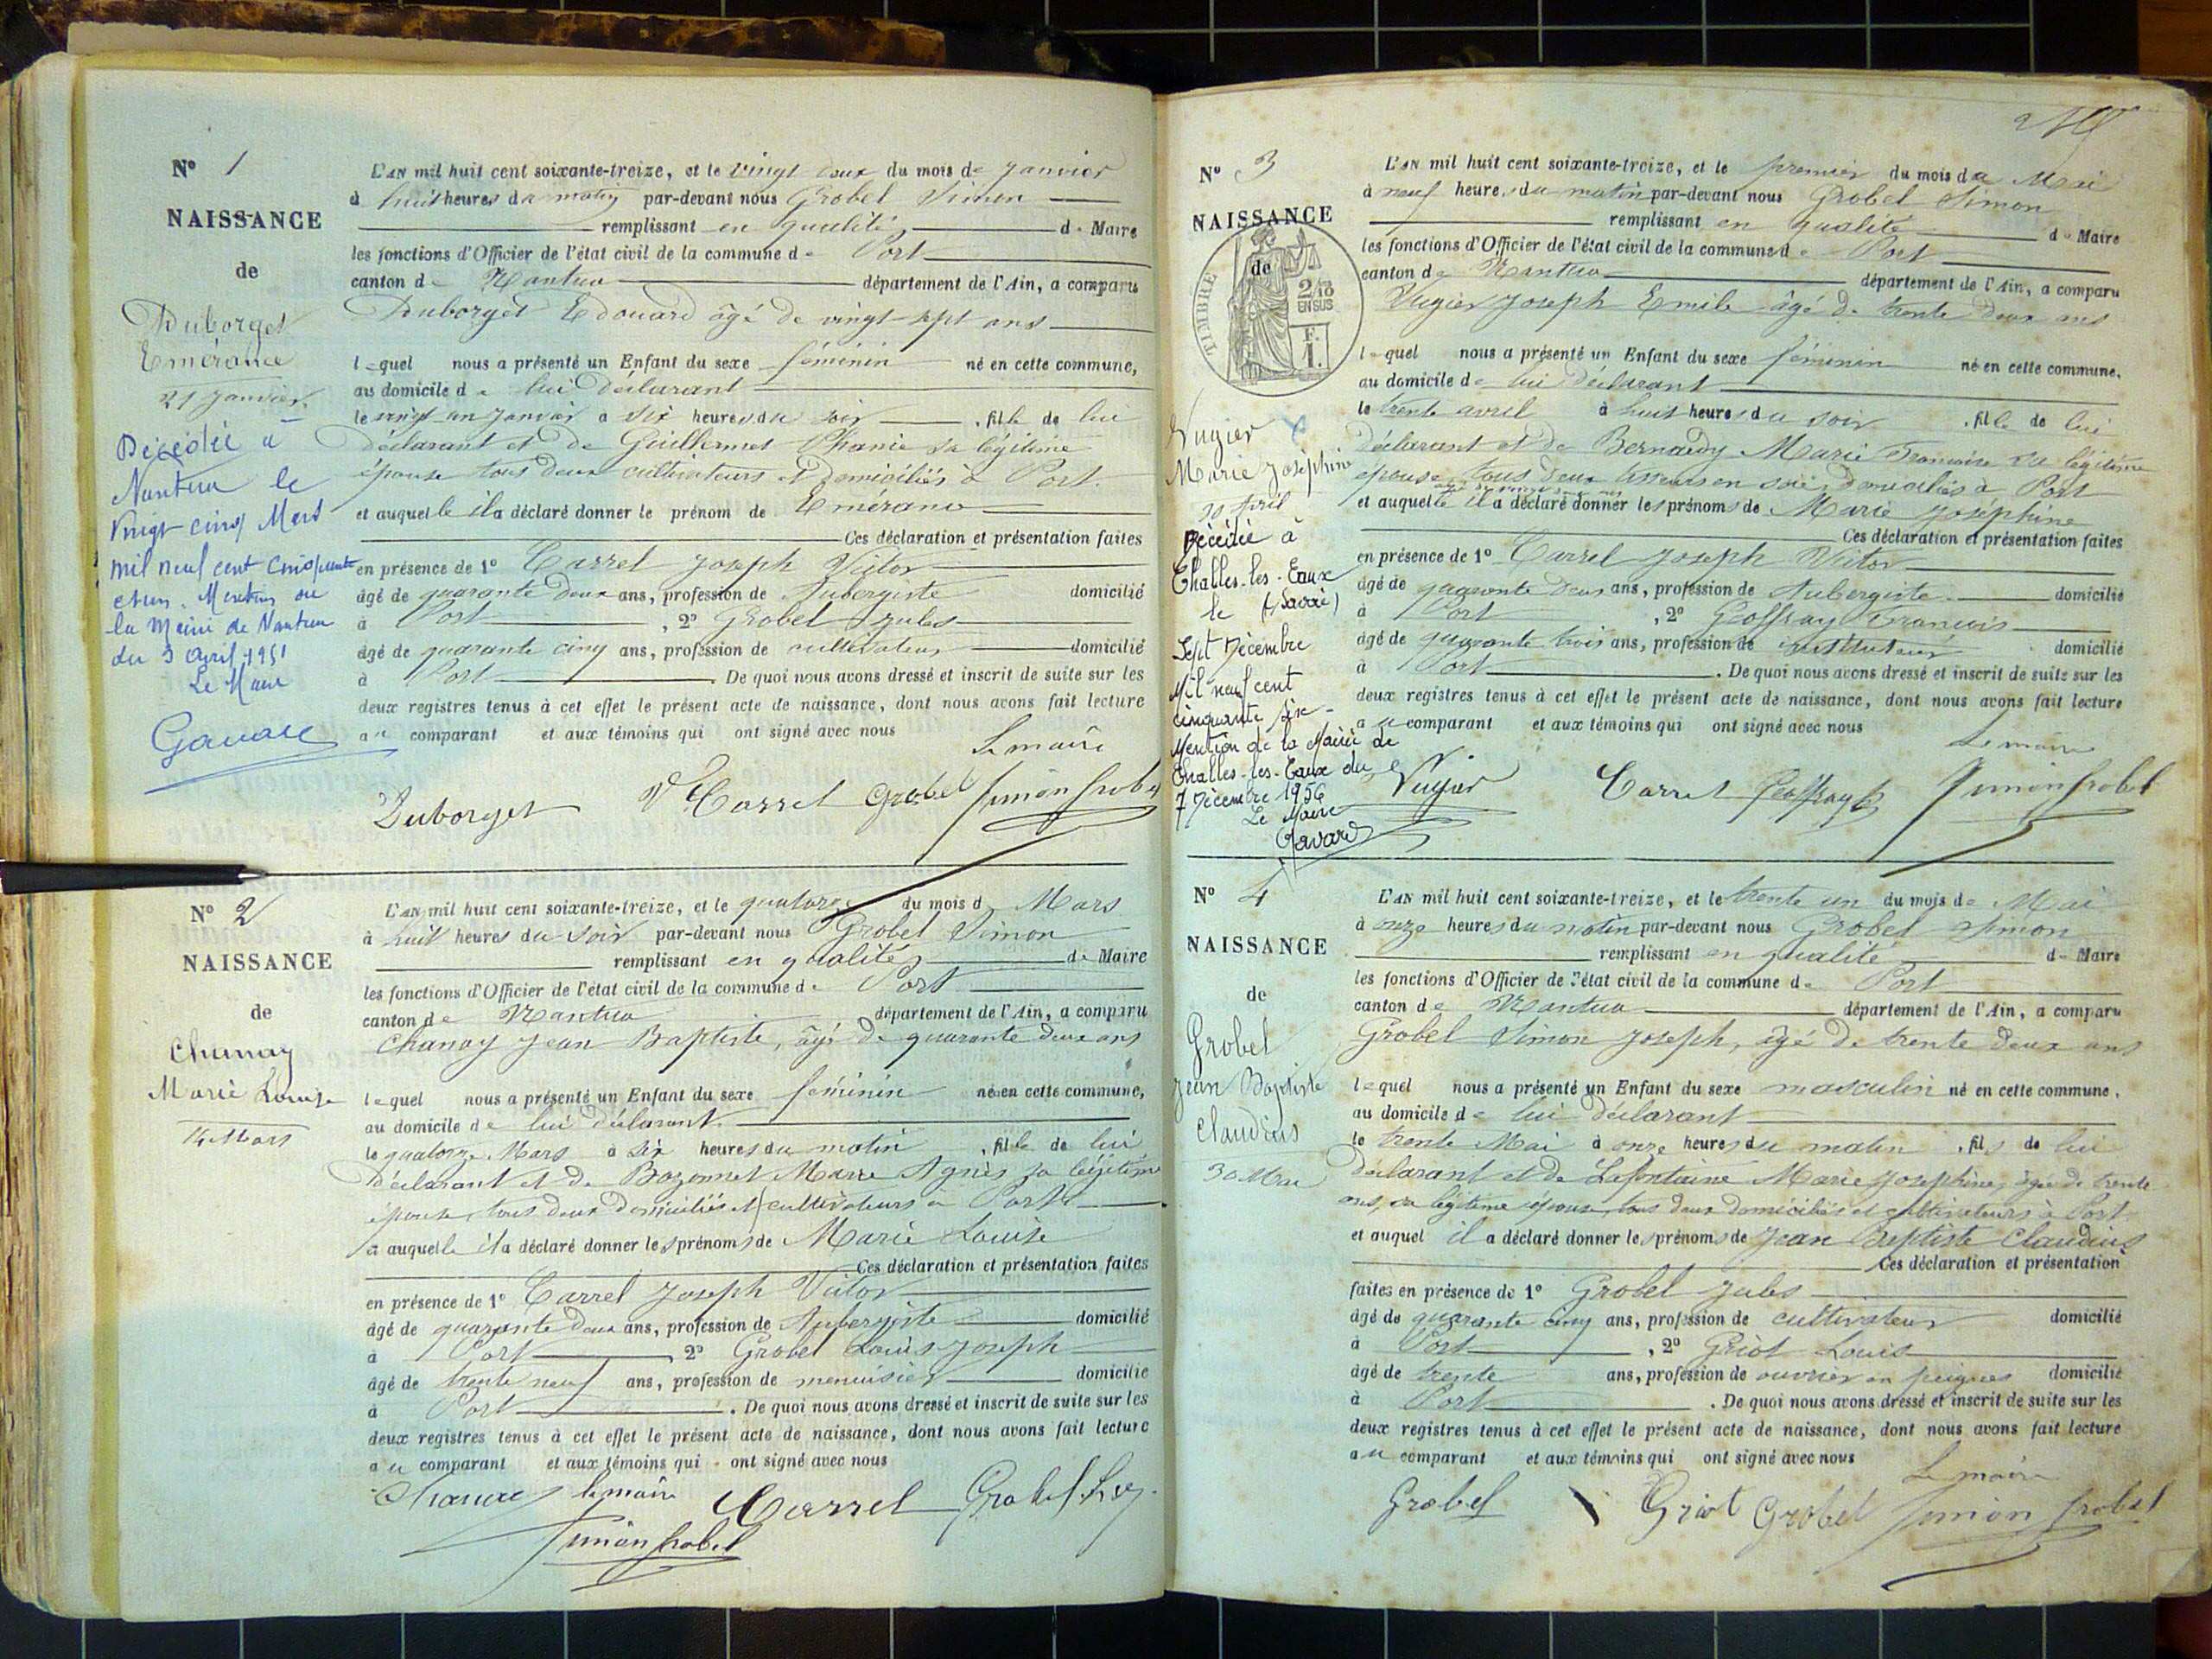 N° 1
NAISSANCE
de
Duborget
Emérance
21 Janvier
Décédée à
Nantua le
Vingt cinq Mars
mil neuf cent cinquante
et un. Mention de
la Mairie de Nantua
du 3 Avril 1951
Le Maire
L'AN mil huit cent soixante-treize, et le vingt deux du mois de Janvier
à huit heures du matin par-devant nous Grobel Simon
remplissant en qualité de Maire
les fonctions d'Officier de l'état civil de la commune de Port
canton de Nantua département de l'Ain, a comparu
Duborget Edouard âgé de vingt sept ans
lequel nous a présenté un Enfant du sexe féminin né en cette commune,
au domicile de lui déclarant
le vingt un Janvier à six heures du soir, fille de lui
déclarant et de Guillermet Phanie sa légitime
épouse tous deux cultivateurs et domiciliés à Port.
et auquelle il a déclaré donner le prénom de Emérance
Ces déclaration et présentation faites
en présence de 1° Carrel Joseph Victor
âgé de quarante deux ans, profession de Aubergiste domicilié
à Port, 2° Grobel Jules
âgé de quarante cinq ans, profession de cultivateur domicilié
à Port. De quoi nous avons dressé et inscrit de suite sur les
deux registres tenus à cet effet le présent acte de naissance, dont nous avons fait lecture
au comparant et aux témoins qui ont signé avec nous
Le maire
Duborget V Carrel Grobel Simon Grobel
N° 2
NAISSANCE
de
Chanay
Marie Louise
14 Mars
L'AN mil huit cent soixante-treize, et le quatorze du mois d Mars
à huit heures du soir par-devant nous Grobel Simon
remplissant en qualité de Maire
les fonctions d'Officier de l'état civil de la commune de Port
canton de Nantua département de l'Ain, a comparu
Chanay Jean Baptiste, âgé de quarante deux ans
lequel nous a présenté un Enfant du sexe féminin né en cette commune,
au domicile de lui déclarant
le quatorze Mars à six heures du matin, fille de lui
déclarant et de Bozonnet Marie Agnès sa légitime
épouse, tous deux domiciliés et cultivateurs à Port
et auquelle il a déclaré donner les prénoms de Marie Louise
Ces déclaration et présentation faites
en présence de 1° Carrel Joseph Victor
âgé de quarante deux ans, profession de Aubergiste domicilié
à Port, 2° Grobel Louis Joseph
âgé de trente neuf ans, profession de menuisier domicilié
à Port. De quoi nous avons dressé et inscrit de suite sur les
deux registres tenus à cet effet le présent acte de naissance, dont nous avons fait lecture
au comparant et aux témoins qui ont signé avec nous
Chanay Le maire Carrel Grobel
Simon Grobel
N° 3
NAISSANCE
de
TIMBRE
Vugier
Marie Joséphine
30 Avril
Décédée à
Challes-les-Eaux
le (Savoie)
Sept Décembre
Mil neuf cent
cinquante six -
Mention de la Mairie de
Challes-les-Eaux du
7 Décembre 1956
Le Maire
L'AN mil huit cent soixante-treize, et le premier du mois de Mai
à neuf heures du matin par-devant nous Grobel Simon
remplissant en qualité de Maire
les fonctions d'Officier de l'état civil de la commune de Port
canton de Nantua département de l'Ain, a comparu
Vugier Joseph Emile âgé de trente deux ans
lequel nous a présenté un Enfant du sexe féminin né en cette commune,
au domicile de lui déclarant
le trente avril à huit heures du soir, fille de lui
déclarant et de Bernardy Marie Françoise sa légitime
épouse, tous deux tisseurs en soie, domiciliés à Port
et auquelle il a déclaré donner les prénoms de Marie Joséphine
Ces déclaration et présentation faites
en présence de 1° Carrel Joseph Victor
âgé de quarante deux ans, profession de Aubergiste domicilié
à Port, 2° Geoffray François
âgé de quarante trois ans, profession de instituteur domicilié
à Port. De quoi nous avons dressé et inscrit de suite sur les
deux registres tenus à cet effet le présent acte de naissance, dont nous avons fait lecture
au comparant et aux témoins qui ont signé avec nous
Le maire
Vugier Carrel Geoffray Simon Grobel
N° 4
NAISSANCE
de
Grobel
Jean Baptiste
Claudius
30 Mai
L'AN mil huit cent soixante-treize, et le trente un du mois de Mai
à onze heures du matin par-devant nous Grobel Simon
remplissant en qualité de Maire
les fonctions d'Officier de l'état civil de la commune de Port
canton de Nantua département de l'Ain, a comparu
Grobel Simon Joseph, âgé de trente deux ans
lequel nous a présenté un Enfant du sexe masculin né en cette commune,
au domicile de lui déclarant
le trente Mai à onze heures du matin, fils de lui
déclarant et de Lafontaine Marie Joséphine, âgée de trente
ans, sa légitime épouse, tous deux domiciliés et cultivateurs à Port
et auquel il a déclaré donner les prénoms de Jean Baptiste Claudius
Ces déclaration et présentation
faites en présence de 1° Grobel Jules
âgé de quarante cinq ans, profession de cultivateur domicilié
à Port, 2° Griot Louis
âgé de trente ans, profession de ouvrier en peignes domicilié
à Port. De quoi nous avons dressé et inscrit de suite sur les
deux registres tenus à cet effet le présent acte de naissance, dont nous avons fait lecture
au comparant et aux témoins qui ont signé avec nous
Le maire
Grobel Griot Grobel Simon Grobel